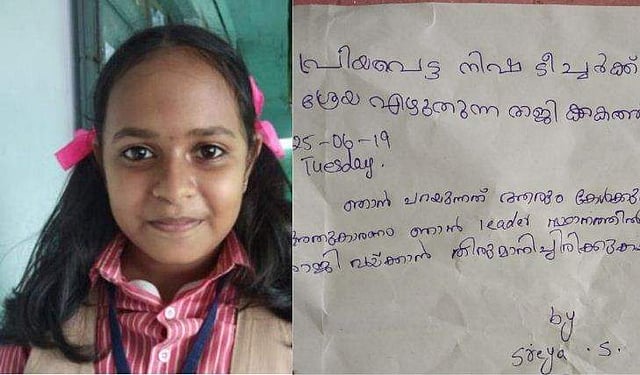 പ്രിയപെട്ട നിഷ ടീച്ചർക്ക്
ശ്രേയ എഴുതുന്ന രാജി ക്കത്ത
25-06-19
Tuesday.
ഞാൻ പറയുന്നത് ആരും കേൾക്കു
അതുകാരണം ഞാൻ leader സ്ഥാനത്തിൽ
രാജി വയ്ക്കാൻ തീരുമാനിച്ചിരിക്കുക
by
Sreya . S.